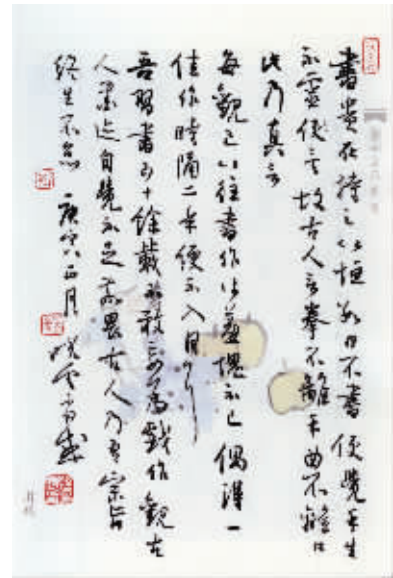 書貴在持之以恒数日不書便覺手生
不靈便故古人云拳不離手曲不離口
此乃真言
每觀己以往書作羞愧不已偶得一
佳作時隔二年便不入目
吾習書五十餘載不敢妄為戲作觀古
人墨迹自覺不足畏古人乃吾宗旨
終生不怠 庚寅正月